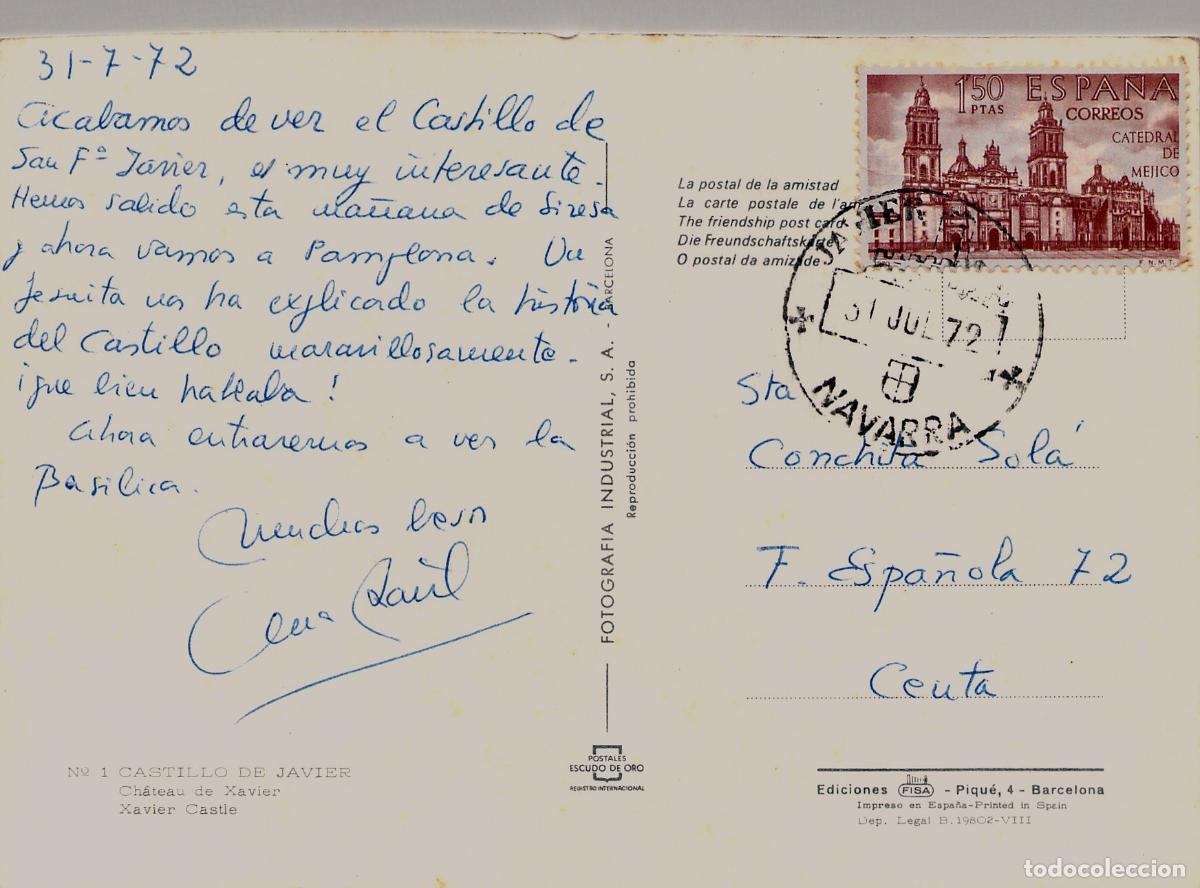 31-7-72
Acabamos de ver el Castillo de
San Fº Javier, es muy interesante.
Hemos salido esta mañana de Siresa
y ahora vamos a Pamplona. Un
Jesuita nos ha explicado la historia
del Castillo maravillosamente.
¡que bien hablaba!
Ahora entraremos a ver la
Basilica.
Muchos besos
Raúl
Nº 1 CASTILLO DE JAVIER
Château de Xavier
Xavier Castle
FOTOGRAFIA INDUSTRIAL, S. A. - BARCELONA
Reproducción prohibida
POSTALES
ESCUDO DE ORO
REGISTRO INTERNACIONAL
1'50 PTAS
ESPAÑA
CORREOS
CATEDRAL
DE
MEJICO
F.N.M.T.
La postal de la amistad
La carte postale de l'am
The friendship post card
Die Freundschaftskarte
O postal da amizade
JAVIER
31 JUL 72
NAVARRA
Sta
Conchita Solá
T. Española 72
Ceuta
Ediciones FISA - Piqué, 4 - Barcelona
Impreso en España-Printed in Spain
Dep. Legal B. 19802-VIII
todocoleccion